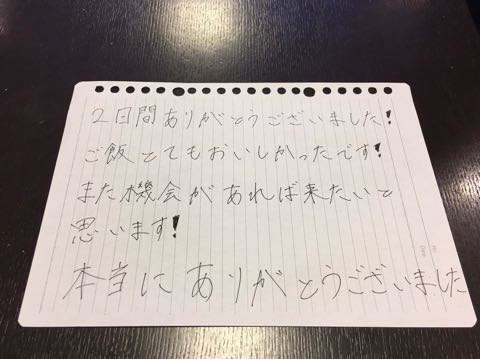 2日間ありがとうございました!
ご飯とてもおいしかったです!
また機会があれば来たいと
思います!
本当にありがとうございました